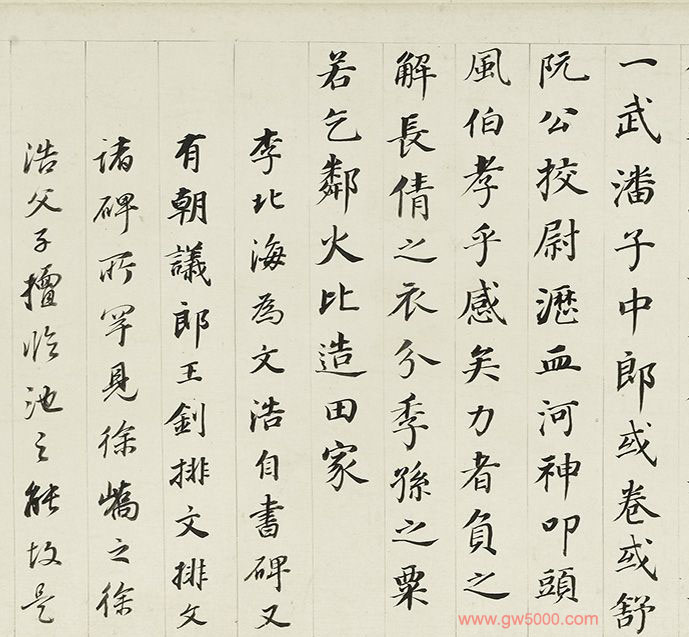 一武潘子中郎或卷或舒
阮公挍尉瀝血河神叩頭
風伯孝乎感矣力者負之
解長倩之衣分季孫之粟
若乞鄰火比造田家
李北海為文浩自書碑又
有朝議郎王釗排文排文
諸碑所罕見徐嶠之徐
浩父子擅臨池之能故是
www.gw5000.com